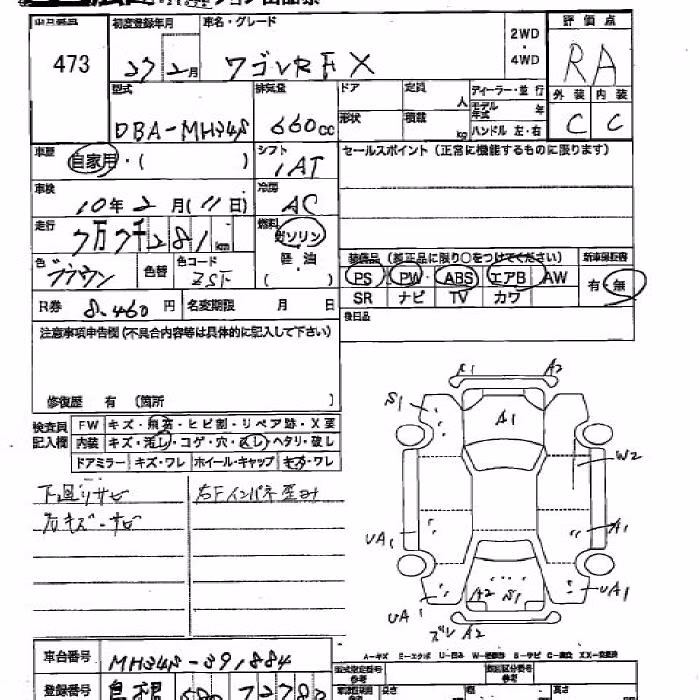 出品番号 初度登録年月 車名・グレード 2WD・4WD 評価点
473 27 2月 ワゴンR FX RA
型式 排気量 ドア 定員 人 ディーラー・並行 外装 内装
DBA-MH34S 660cc 形状 積載 kg モデル年式 年 ハンドル 左・右 C C
車歴 自家用・( ) シフト IAT セールスポイント (正常に機能するものに限ります)
車検 10年2月(11日) 冷房 AC
走行 7万7千281km 燃料 ガソリン 軽油 ( )
色 ブラウン 色替 色コード ZSF
装備品 (純正品に限り○をつけてください) 新車保証書
PS PW ABS エアB AW 有・無
SR ナビ TV カワ
R券 8,460円 名変期限 月 日 後日品
注意事項申告欄 (不具合内容等は具体的に記入して下さい)
修復歴 有 (箇所 )
検査員記入欄 FW キズ・飛石・ヒビ割・リペア跡・X要
内装 キズ・汚し・コゲ・穴・返し・ヘタリ・破し
ドアミラー キズ・ワレ ホイール・キャップ キズ・ワレ
下廻りサビ 右Fインパネ歪み
右キズ・サビ
S1 A2
S1 A1
W2
UA1 A1
A2 S1 UA1
UA1 ズレ A2
A-キズ E-エクボ U-凹み W-補修跡 S-サビ C-腐食 XX-交換済
車台番号 MH34S-391884
型式指定番号 類別区分番号
登録番号 島根 580 長さ 幅 高さ